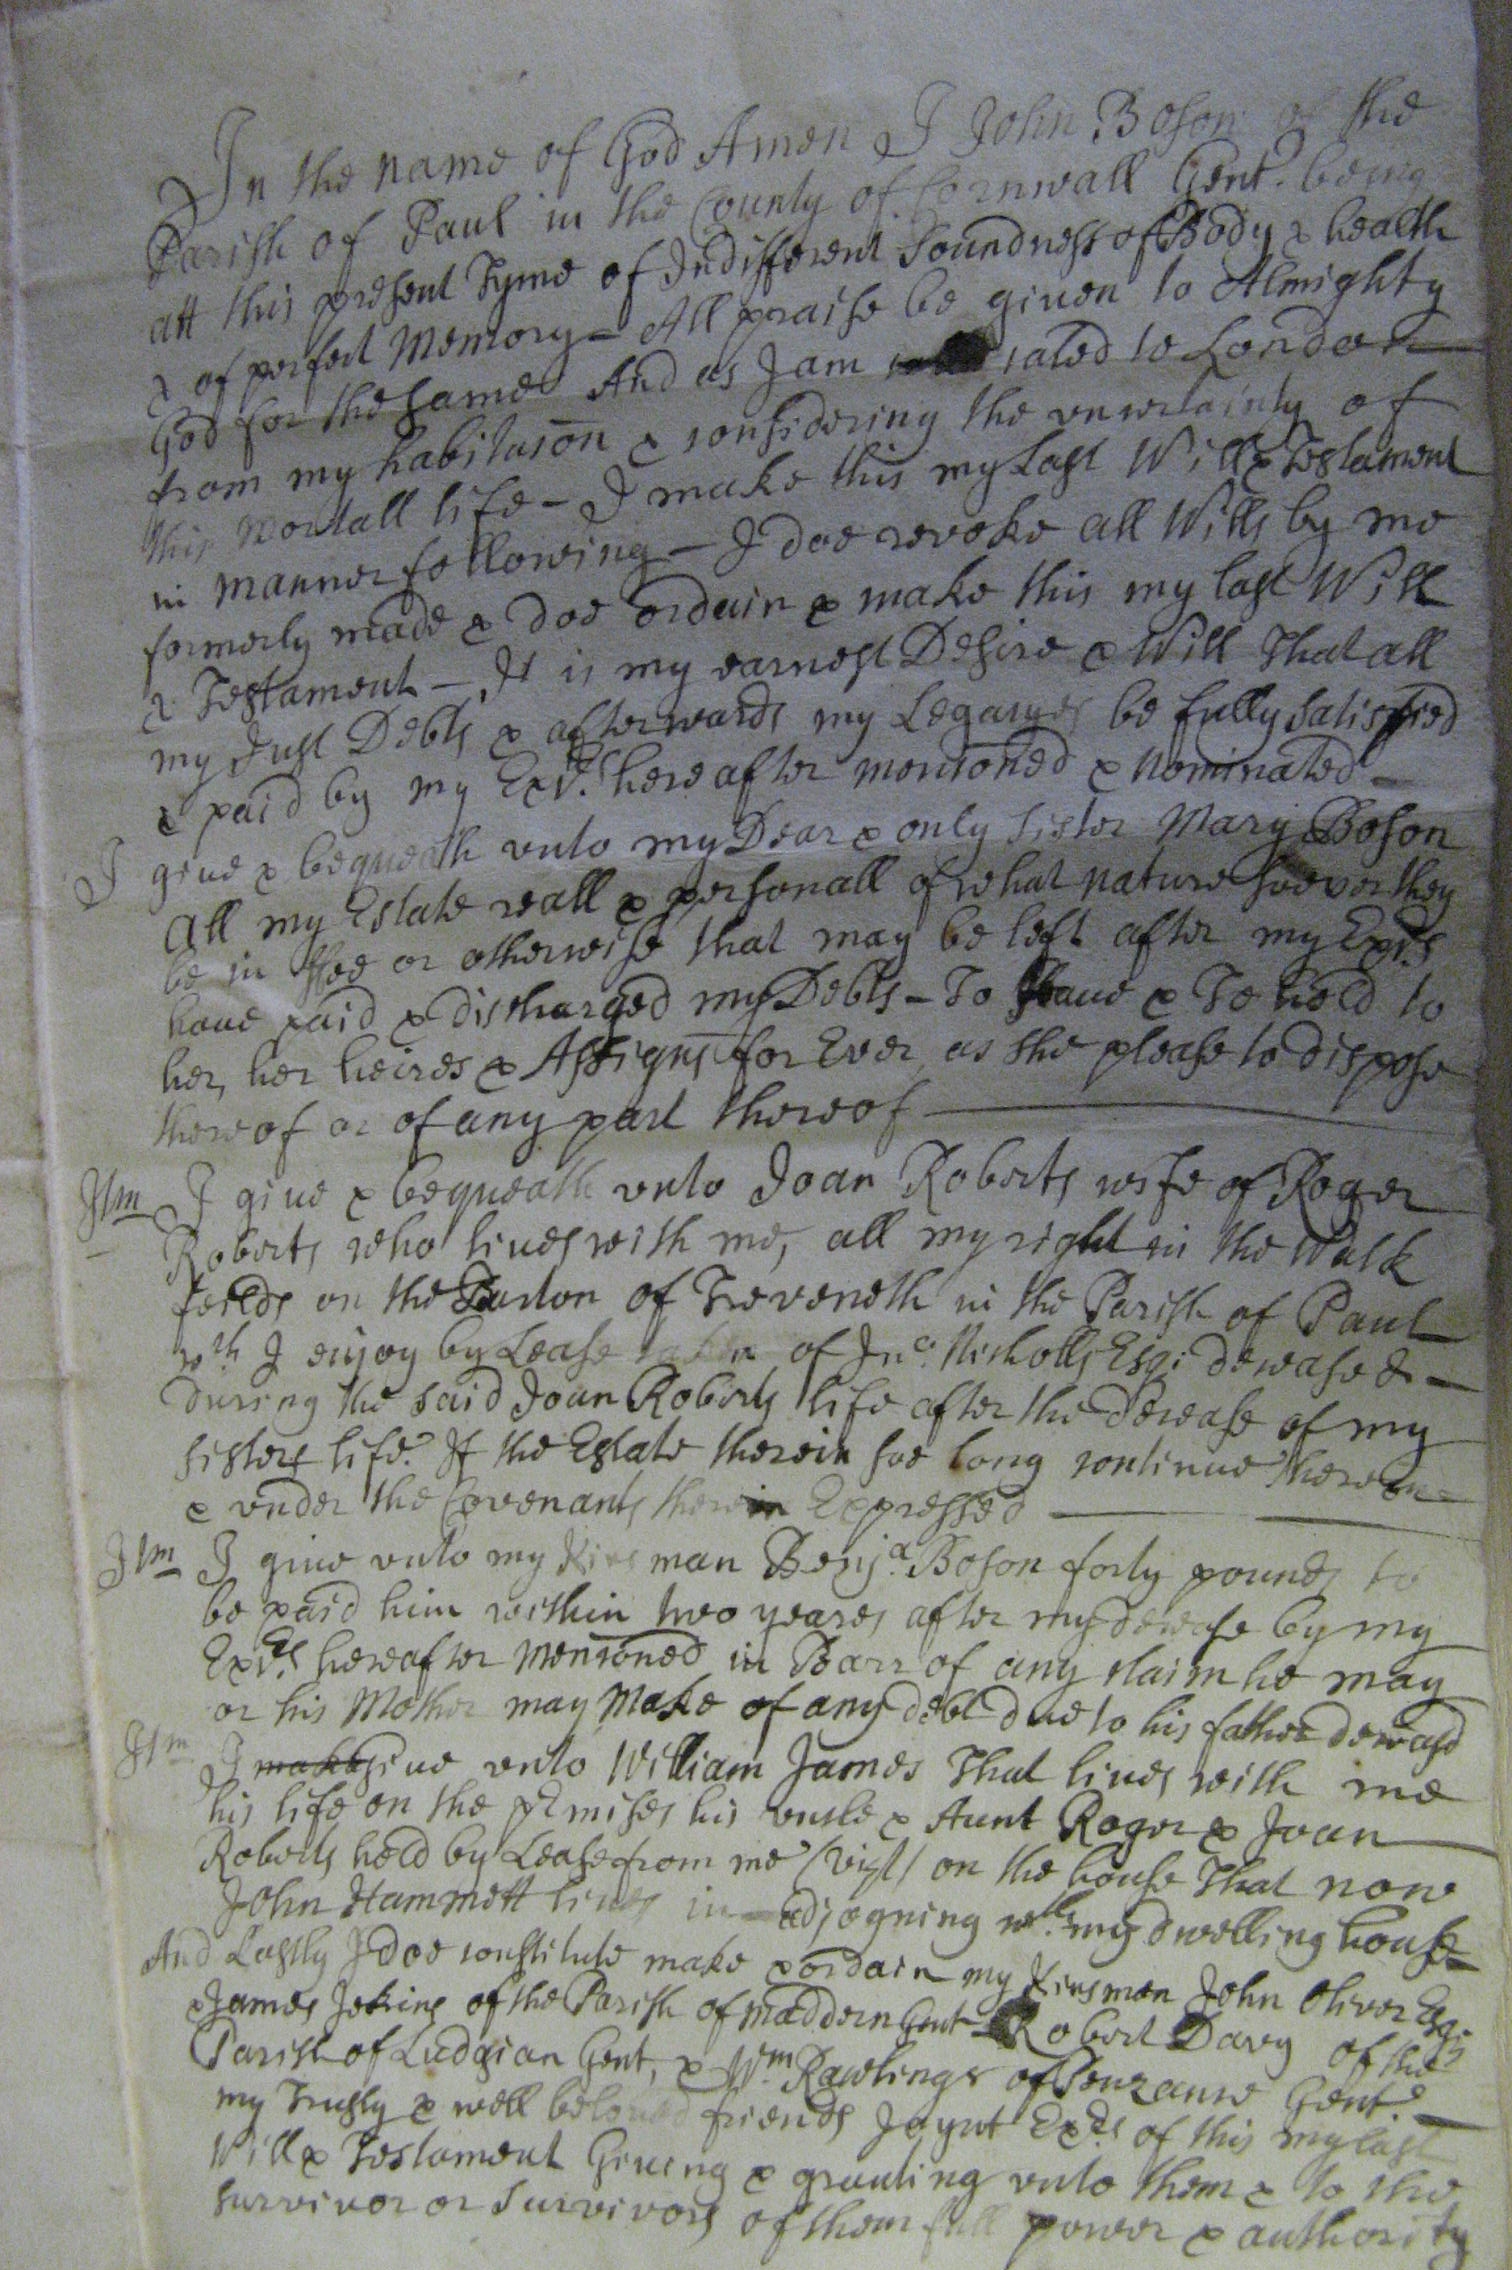 In the name of God Amen I John Boson of the
Parish of Paul in the County of Cornwall Gent. being
att this present Tyme of Indifferent Soundness of Body & health
& of perfect Memory – All praise be given to Almighty
God for the same And as I am called to London
from my habitacōn & considering the uncertainty of
this mortall life – I make this my Last Will & Testament
in manner following – I doe revoke all Wills by me
formerly made & doe ordain & make this my last Will
& Testament – It is my earnest Desire & Will That all
my Just Debts & afterwards my Legacyes be fully satisfied
& paid by my Exrs. hereafter mencōned & Nominated –
I give & bequeath unto my Dear & only Sister Mary Boson
All my Estate reall & personall of what nature soever they
be in ffee or otherwise that may be left after my Exrs
have paid & discharged my Debts – To Have & To hold to
her, her heires & Assigns for Ever as she please to dispose
thereof or of any part thereof
Itm I give & bequeath unto Joan Roberts wife of Roger
Roberts who lives with me, all my right in the
feilds on the of Treveneth in the Parish of Paul
wch I enjoy by Lease taken of Jno. Nicholls Esqr deceased –
during the said Joan Roberts life after the decease of my
sisters life If the Estate therein soe long continue thereon
& under the Covenants therein Expressed
Itm I give unto my Kinsman Benja. Boson forty pounds to
be paid him within two yeares after my decease by my
Exrs. hereafter Mencōned in Barr of any claim he may
or his Mother may Make of any debt due to his father deceasd
Itm I make give unto William James That lives with me
his life on the pEmises his uncle & Aunt Roger & Joan
Roberts held by Lease from me (vizt) on the house That now
John Hammett lives in adjoyning wth. my dwelling house
And Lastly I doe constitute make & ordain my Kinsmen John Oliver Esqr
& James Jenkins of the Parish of Maddern Gent Robert Davy of the
Parish of Ludgian Gent, & Wm. Rawlings of Penzance Gent.
my Trusty & well beloved friends Joynt Exrs. of this my last
Will & Testament Giveing & granting unto them & to the
survivor or survivors of them full power & authority